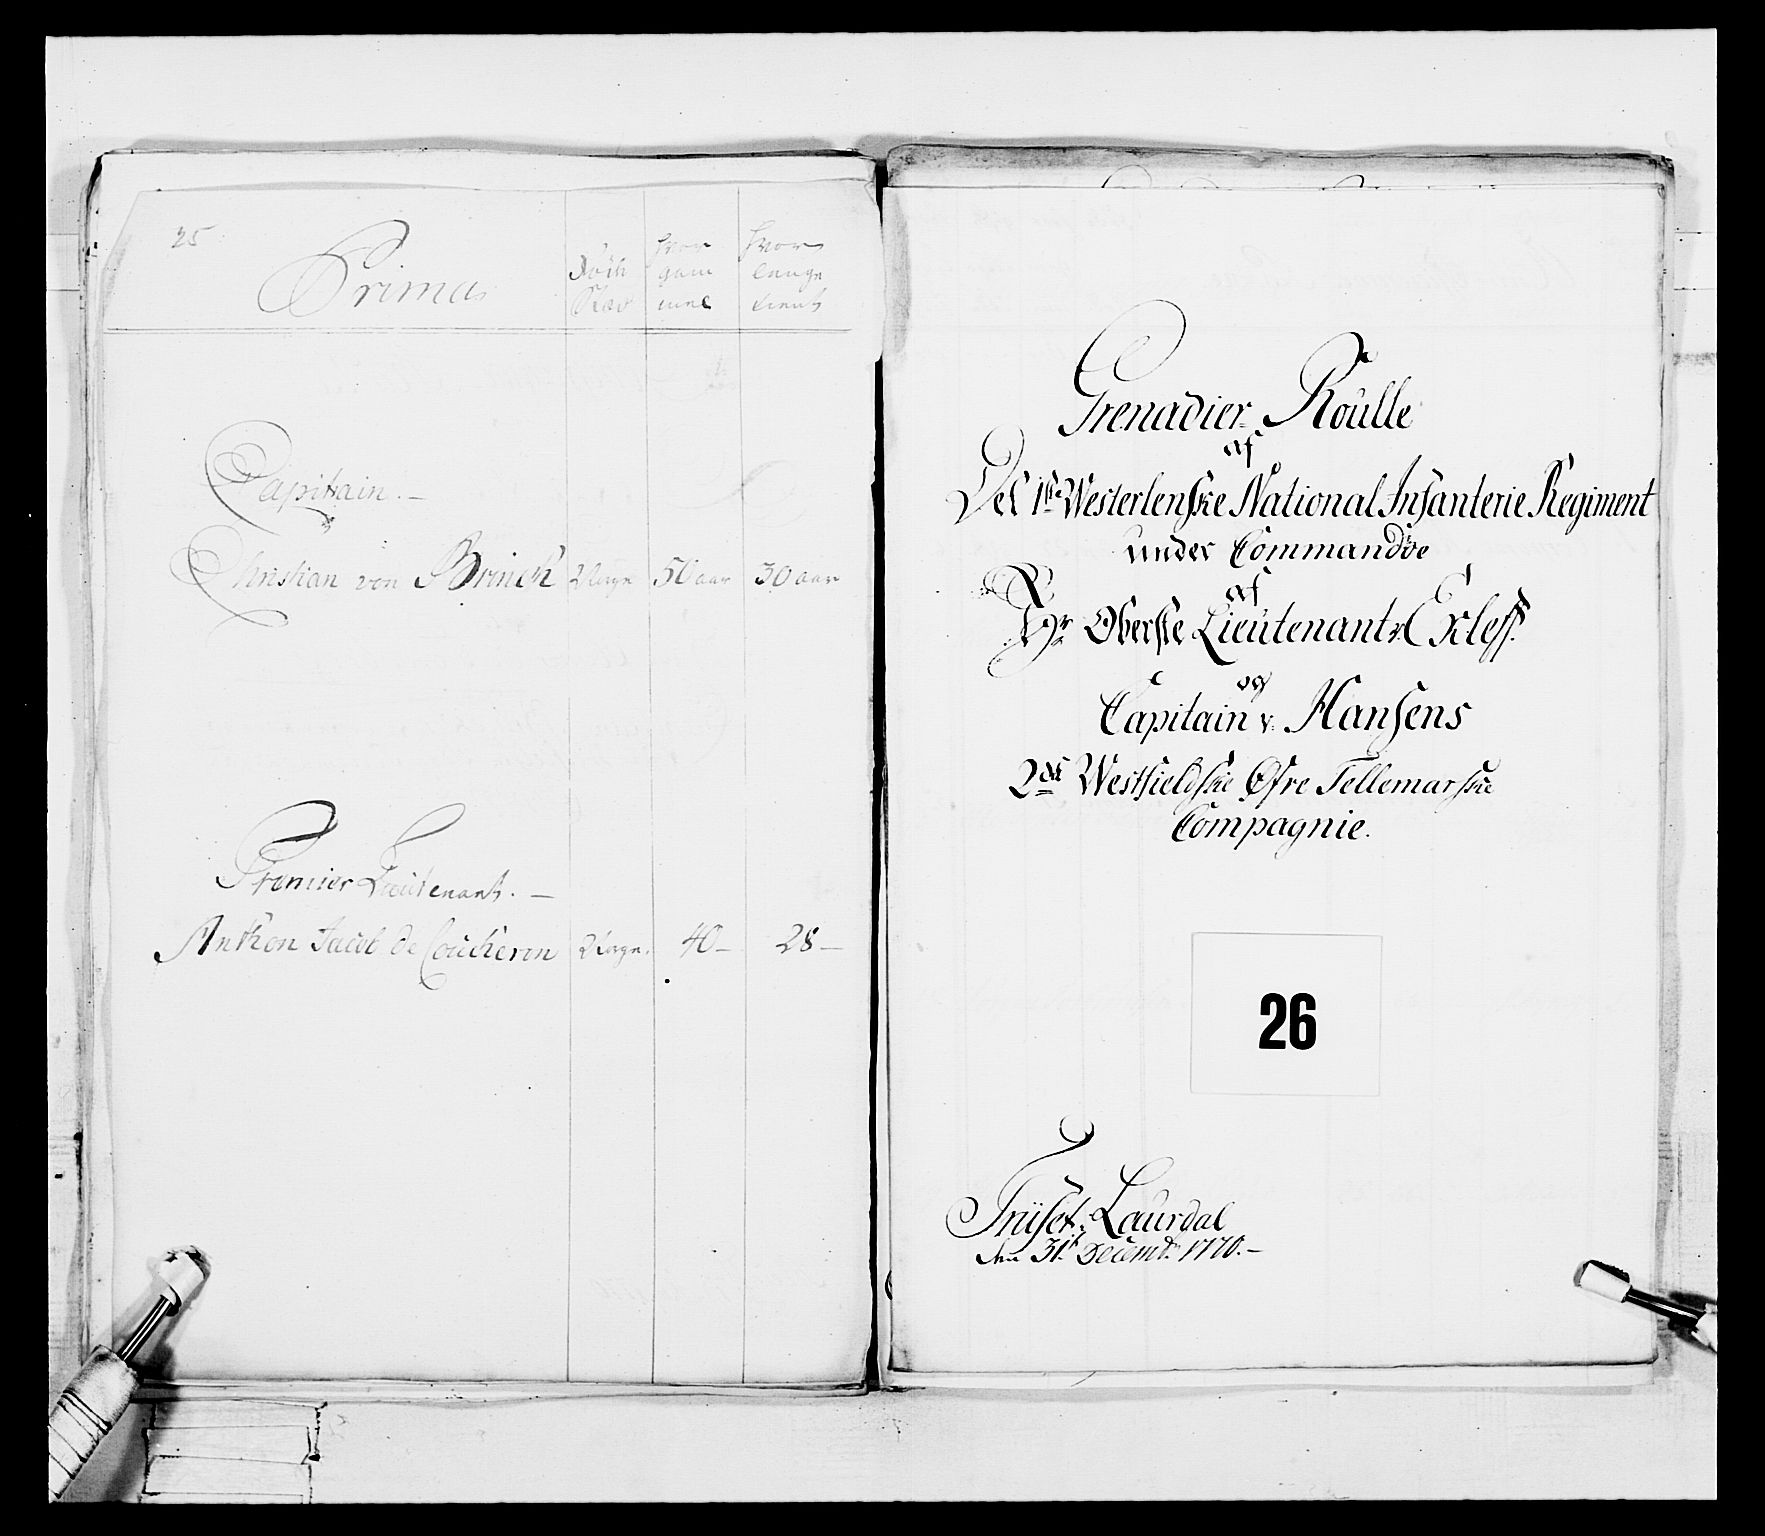 25
Prima
Föde
Stad
hvor
gam
mel
hvor
lenge
tient
Capitain. —
Christian von Brinch Norge 50 aar 30 aar
Premier Lieutenant. —
Anthon Jacob de Coucheron Norge. 40 — 28 —
Grenadier Roulle
af
Det 1ste Westerlenske National Infanterie Regiment
under Commandoe
af
Hr Oberste Lieutenant v:
og
Capitain v: Hansens
2det Westfieldske Øfre Tellemarske
Compagnie.
26
Trüset. Laurdal
den 31t Decembr 1770. —